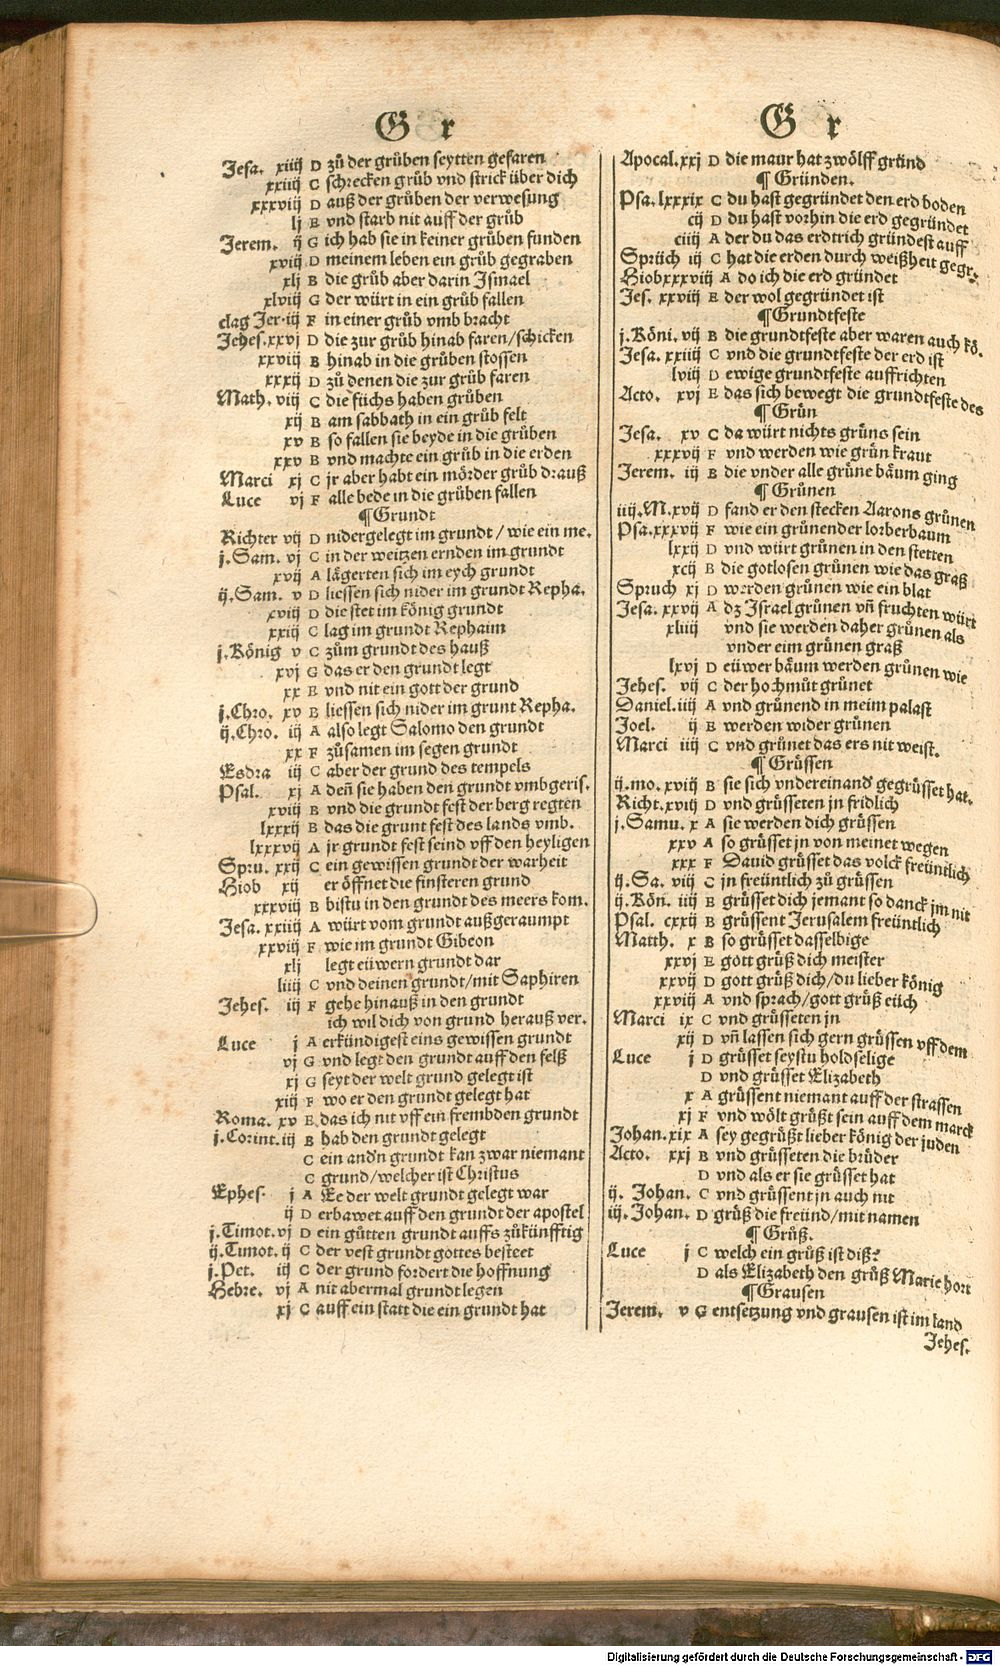 Gr
Jesa. xiiij D zů der grůben seytten gefaren
xxiiij C schrecken grůb vnd strick über dich
xxxviij D auß der grůben der verwesung
lj E vnd starb nit auff der grůb
Jerem. ij G ich hab sie in keiner grůben funden
xviij D meinem leben ein grůb gegraben
xlj B die grůb aber darin Ismael
xlviij G der würt in ein grůb fallen
clag Jer. iij F in einer grůb vmb bracht
Jehes. xxvj D die zur grůb hinab faren/schicken
xxviij B hinab in die grůben stossen
xxxij D zů denen die zur grůb faren
Math. viij C die füchs haben grůben
xij B am sabbath in ein grůb felt
xv B so fallen sie beyde in die grůben
xxv B vnd machte ein grůb in die erden
Marci xj C jr aber habt ein mörder grůb drauß
Luce vj F alle bede in die grůben fallen
¶Grundt
Richter vij D nidergelegt im grundt / wie ein me.
j. Sam. vj C in der weitzen ernden im grundt
xvij A lägerten sich im eych grundt
ij. Sam. v D liessen sich nider im grundt Repha.
xviij D die stet im könig grundt
xxiij C lag im grundt Rephaim
j. König v C zům grundt des hauß
xvj G das er den grundt legt
xx E vnd nit ein gott der grund
j. Chro. xv B liessen sich nider im grunt Repha.
ij. Chro. iij A also legt Salomo den grundt
xx F zůsamen im segen grundt
Esdra iij C aber der grund des tempels
Psal. xj A deñ sie haben den grundt vmbgeris.
xviij B vnd die grundt fest der berg regten
lxxxij B das die grunt fest des lands vmb.
lxxxvij A jr grundt fest seind vff den heyligen
Spru. xxij C ein gewissen grundt der warheit
Hiob xij er öffnet die finsteren grund
xxxviij B bistu in den grundt des meers kom.
Jesa. xxiiij A würt vom grundt außgeraumpt
xxviij F wie im grundt Gibeon
xlj legt eüwern grundt dar
liiij C vnd deinen grundt/mit Saphiren
Jehes. iij F gehe hinauß in den grundt
ich wil dich von grund herauß ver.
Luce j A erkündigest eins gewissen grundt
vj G vnd legt den grundt auff den felß
xj G seyt der welt grund gelegt ist
xiij F wo er den grundt gelegt hat
Roma. xv E das ich nit vff ein frembden grundt
j. Corint. iij B hab den grundt gelegt
C ein and'n grundt kan zwar niemant
C grund/welcher ist Christus
Ephes. j A Ee der welt grundt gelegt war
ij D erbawet auff den grundt der apostel
j. Timot. vj D ein gütten grundt auffs zůkünfftig
ij. Timot. ij C der vest grundt gottes besteet
j. Pet. iij C der grund fordert die hoffnung
Hebre. vj A nit abermal grundt legen
xj C auff ein statt die ein grundt hat
Gr
Apocal. xxj D die maur hat zwölff gründ
¶ Gründen.
Psa. lxxxix C du hast gegründet den erd boden
cij D du hast vorhin die erd gegründet
ciiij A der du das erdtrich gründest auff
Sprüch iij C hat die erden durch weißheit gegr.
Hiob xxxviij A do ich die erd gründet
Jes. xxviij E der wol gegründet ist
¶Grundtfeste
j. Köni. vij B die grundtfeste aber waren auch kö.
Jesa. xxiiij C vnd die grundtfeste der erd ist
lviij D ewige grundtfeste auffrichten
Acto. xvj E das sich bewegt die grundtfeste des
¶ Grün
Jesa. xv C da würt nichts grüns sein
xxxvij F vnd werden wie grün kraut
Jerem. iij B die vnder alle grüne bäum ging
¶ Grünen
iiij. M. xvij D fand er den stecken Aarons grünen
Psa. xxxvij F wie ein grünender lorberbaum
lxxij D vnd würt grünen in den stetten
xcij B die gotlosen grünen wie das graß
Spruch xj D werden grünen wie ein blat
Jesa. xxvij A dz Israel grünen vñ fruchten würt
xliiij vnd sie werden daher grünen als
vnder eim grünen graß
lxvj D eüwer bäum werden grünen wie
Jehes. vij C der hochmůt grünet
Daniel. iiij A vnd grünend in meim palast
Joel. ij E werden wider grünen
Marci iiij C vnd grünet das ers nit weist.
¶ Grüssen
ij. mo. xviij B sie sich vndereinand' gegrüsset hat.
Richt. xviij D vnd grüsseten jn fridlich
j. Samu. x A sie werden dich grüssen
xxv A so grüsset jn von meinet wegen
xxx F Dauid grüsset das volck freüntlich
ij. Sa. viij C jn freüntlich zů grüssen
ij. Kön. iiij E grüsset dich jemant so danck jm nit
Psal. cxxij B grüssent Jerusalem freüntlich
Matth. x B so grüsset dasselbige
xxvj E gott grüß dich meister
xxvij D gott grüß dich/du lieber könig
xxviij A vnd sprach/gott grüß eüch
Marci ix C vnd grüsseten jn
xij D vñ lassen sich gern grüssen vff dem
Luce j D grüsset seystu holdselige
D vnd grüsset Elizabeth
x A grüssent niemant auff der strassen
xj F vnd wölt grüßt sein auff dem marck
Johan. xix A sey gegrüßt lieber könig der juden
Acto. xxj B vnd grüsseten die brüder
D vnd als er sie grüsset hat
ij. Johan. C vnd grüssent jn auch nit
iij. Johan. D grüß die freünd/mit namen
¶ Grůß.
Luce j C welch ein grůß ist diß?
D als Elizabeth den grůß Marie hort
¶Grausen
Jerem. v G entsetzung vnd grausen ist im land
Jehes.
Digitalisierung gefördert durch die Deutsche Forschungsgemeinschaft - DFG